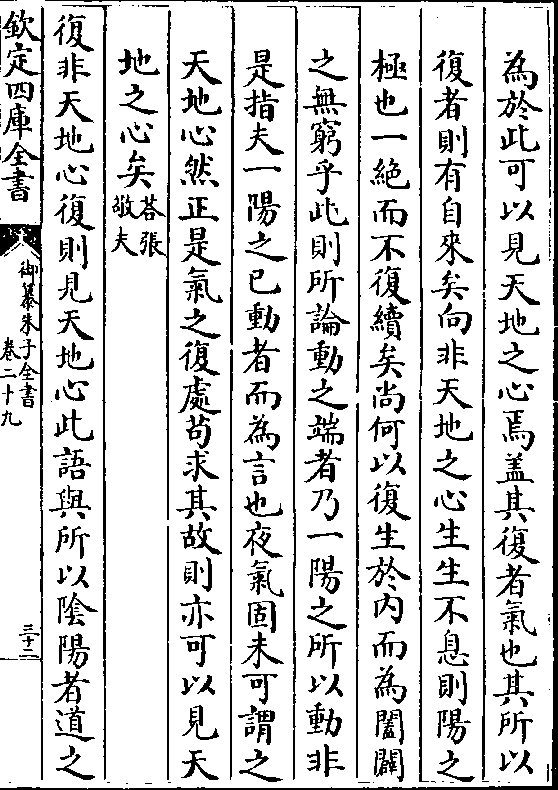 為於此可以見天地之心焉盖其復者氣也其所以
復者則有自來矣向非天地之心生生不息則陽之
極也一絶而不復續矣尚何以復生於内而為闔闢
之無窮乎此則所論動之端者乃一陽之所以動非
是指夫一陽之已動者而為言也夜氣固未可謂之
天地心然正是氣之復處苟求其故則亦可以見天
地之心矣答張
敬夫
復非天地心復則見天地心此語與所以陰陽者道之
欽定四庫全書
御纂朱子全書
卷二十九
三十二